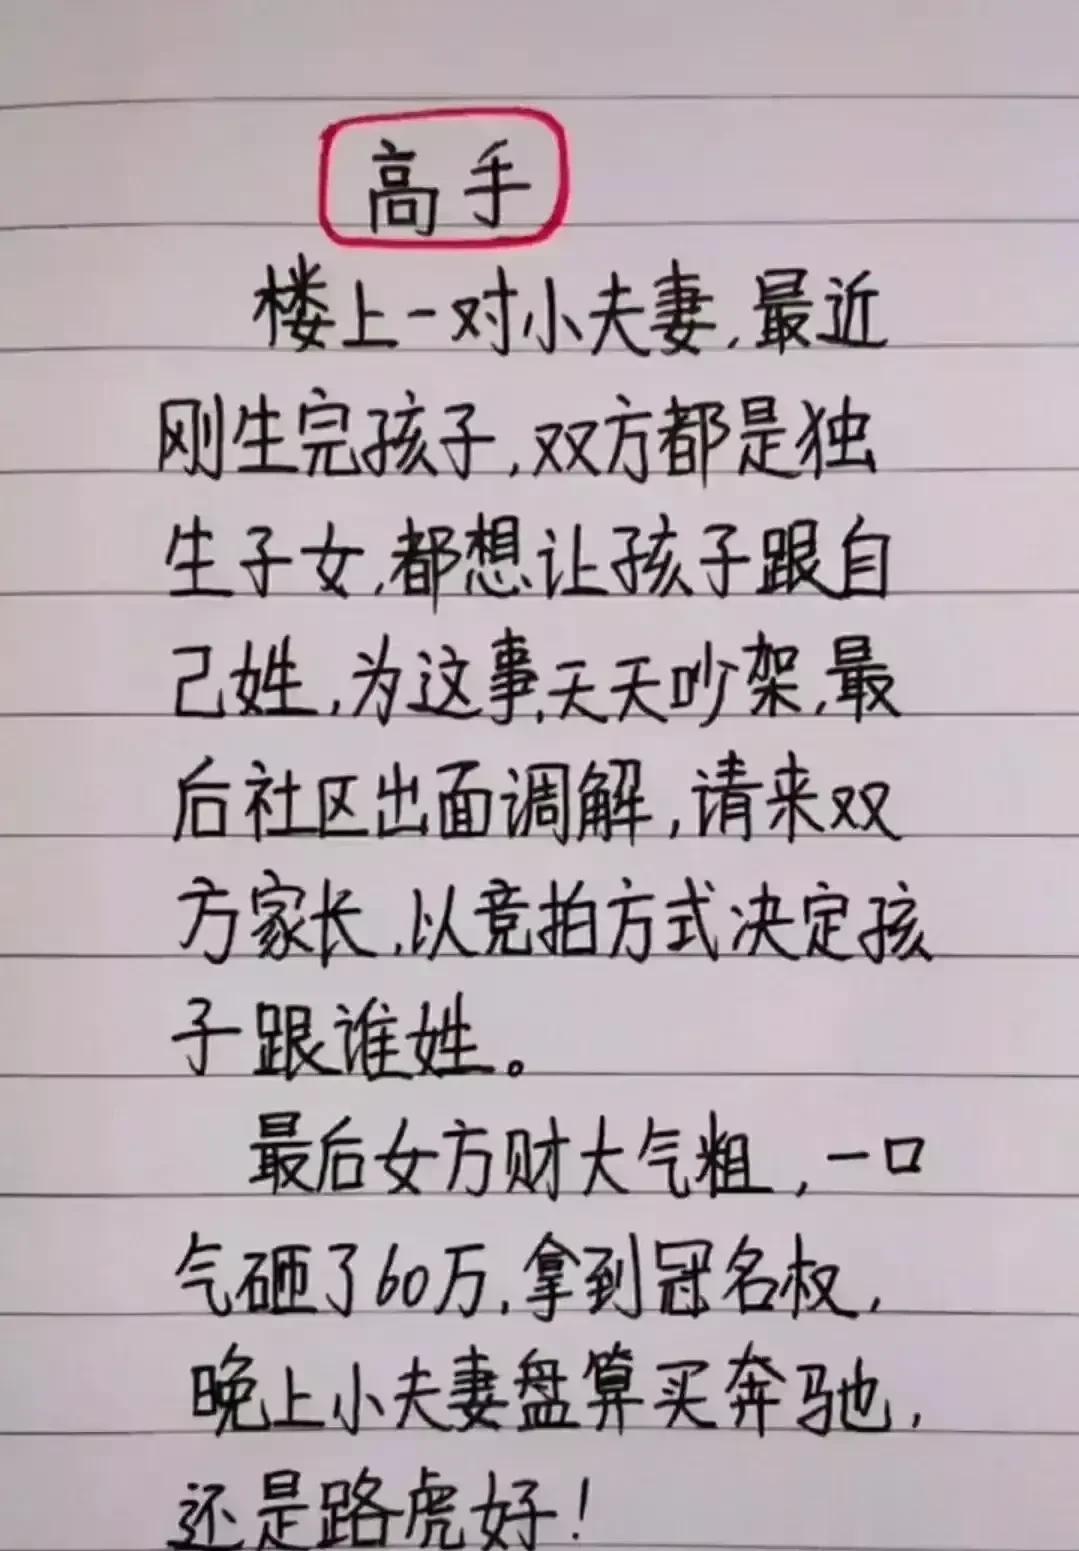 高手
楼上一对小夫妻,最近
刚生完孩子,双方都是独
生子女,都想让孩子跟自
己姓,为这事,天天吵架,最
后社区出面调解,请来双
方家长,以竞拍方式决定孩
子跟谁姓。
最后女方财大气粗,一口
气砸了60万,拿到冠名权,
晚上小夫妻盘算买奔驰,
还是路虎好!